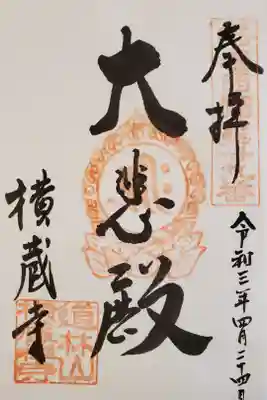 奉拝
令和三年四月二十四日
大悲殿
横蔵寺
道林山